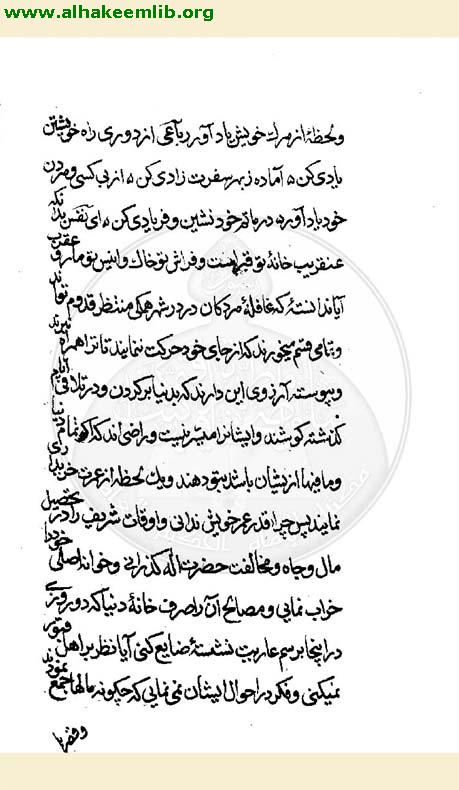 www.alhakeemlib.org
و لحظهٔ از مرک خویش یاد آور رباعی از دوری راه خویشتن
یادی کن ۵ آماده ز بهر سفرت زادی کن ۵ از بی کسی و مردن
خود یاد آور ۵ در ماتم خود نشین و فریادی کن ۵ ای نفس بدانکه
عنقریب خانهٔ تو قبر است و فراش تو خاک و انیس تو مار و عقرب
آیا ندانستهٔ که غافلهٔ مردکان در در شهر همکی منتظر قدوم تواند
و تمامی قسم میخورند که از جای خود حرکت ننمایند تا ترا همراه نبرند
و پیوسته آرزوی این دارند که بدنیا برکردن و در تلافی ایام
کذشته کوشند و ایشانرا میسر نیست و راضی اند که اکر تمام دنیا
و مافیها از یشان باشد بتو دهند و یک لحظه از عمرت خریداری
نمایند پس چرا قدر عمر خویش ندانی و اوقات شریف را در تحصیل
مال و جاه و مخالفت حضرت اله کذرانی و خوانه اصلی خود را
خراب نمایی و مصالح آن را صرف خانهٔ دنیا که دو روزی
در اینجا برسم عاریت نشستهٔ ضایع کنی آیا نظر بر اهل قبور
نمیکنی و فکر در احوال ایشان نمی نمایی که چکونه مالها جمع نمودند
و قصرها